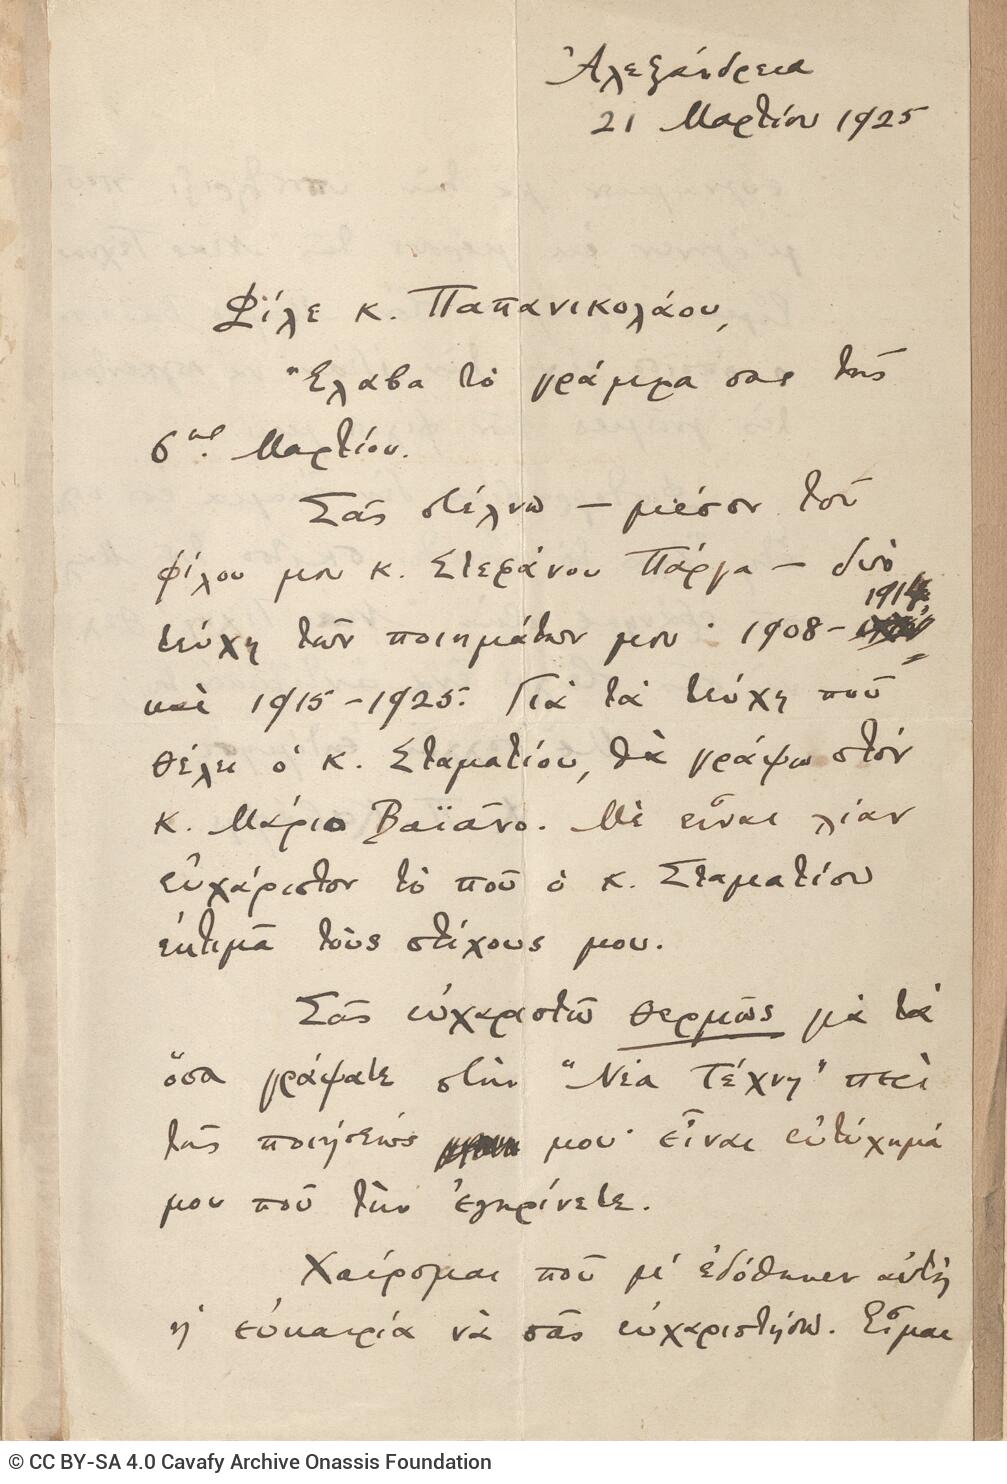 Ἀλεξάνδρεια
21 Μαρτίου 1925
Φίλε κ. Παπανικολάου,
Ἔλαβα τὸ γράμμα σας τῆς
6ης Μαρτίου.
Σᾶς στέλνω — μέσον τοῦ
φίλου μου κ. Στεφάνου Πάργα — δυὸ
τεύχη τῶν ποιημάτων μου· 1908-1914,
καὶ 1915-1925. Γιὰ τὰ τεύχη ποῦ
θέλει ὁ κ. Σταματίου, θὰ γράψω στὸν
κ. Μάριο Βαϊᾶνο. Μὲ εἶναι λίαν
εὐχάριστον τὸ ποῦ ὁ κ. Σταματίου
ἐκτιμᾶ τοὺς στίχους μου.
Σᾶς εὐχαριστῶ θερμῶς γιὰ τὰ
ὅσα γράψατε στὴν "Νέα Τέχνη" περὶ
τῆς ποιήσεώς μου· εἶναι εὐτύχημά
μου ποῦ τὴν ἐγκρίνετε.
Χαίρομαι ποῦ μ' ἐδόθηκεν αὐτὴ
ἡ εὐκαιρία νὰ σᾶς εὐχαριστήσω. Εἶμαι
© CC BY-SA 4.0 Cavafy Archive Onassis Foundation